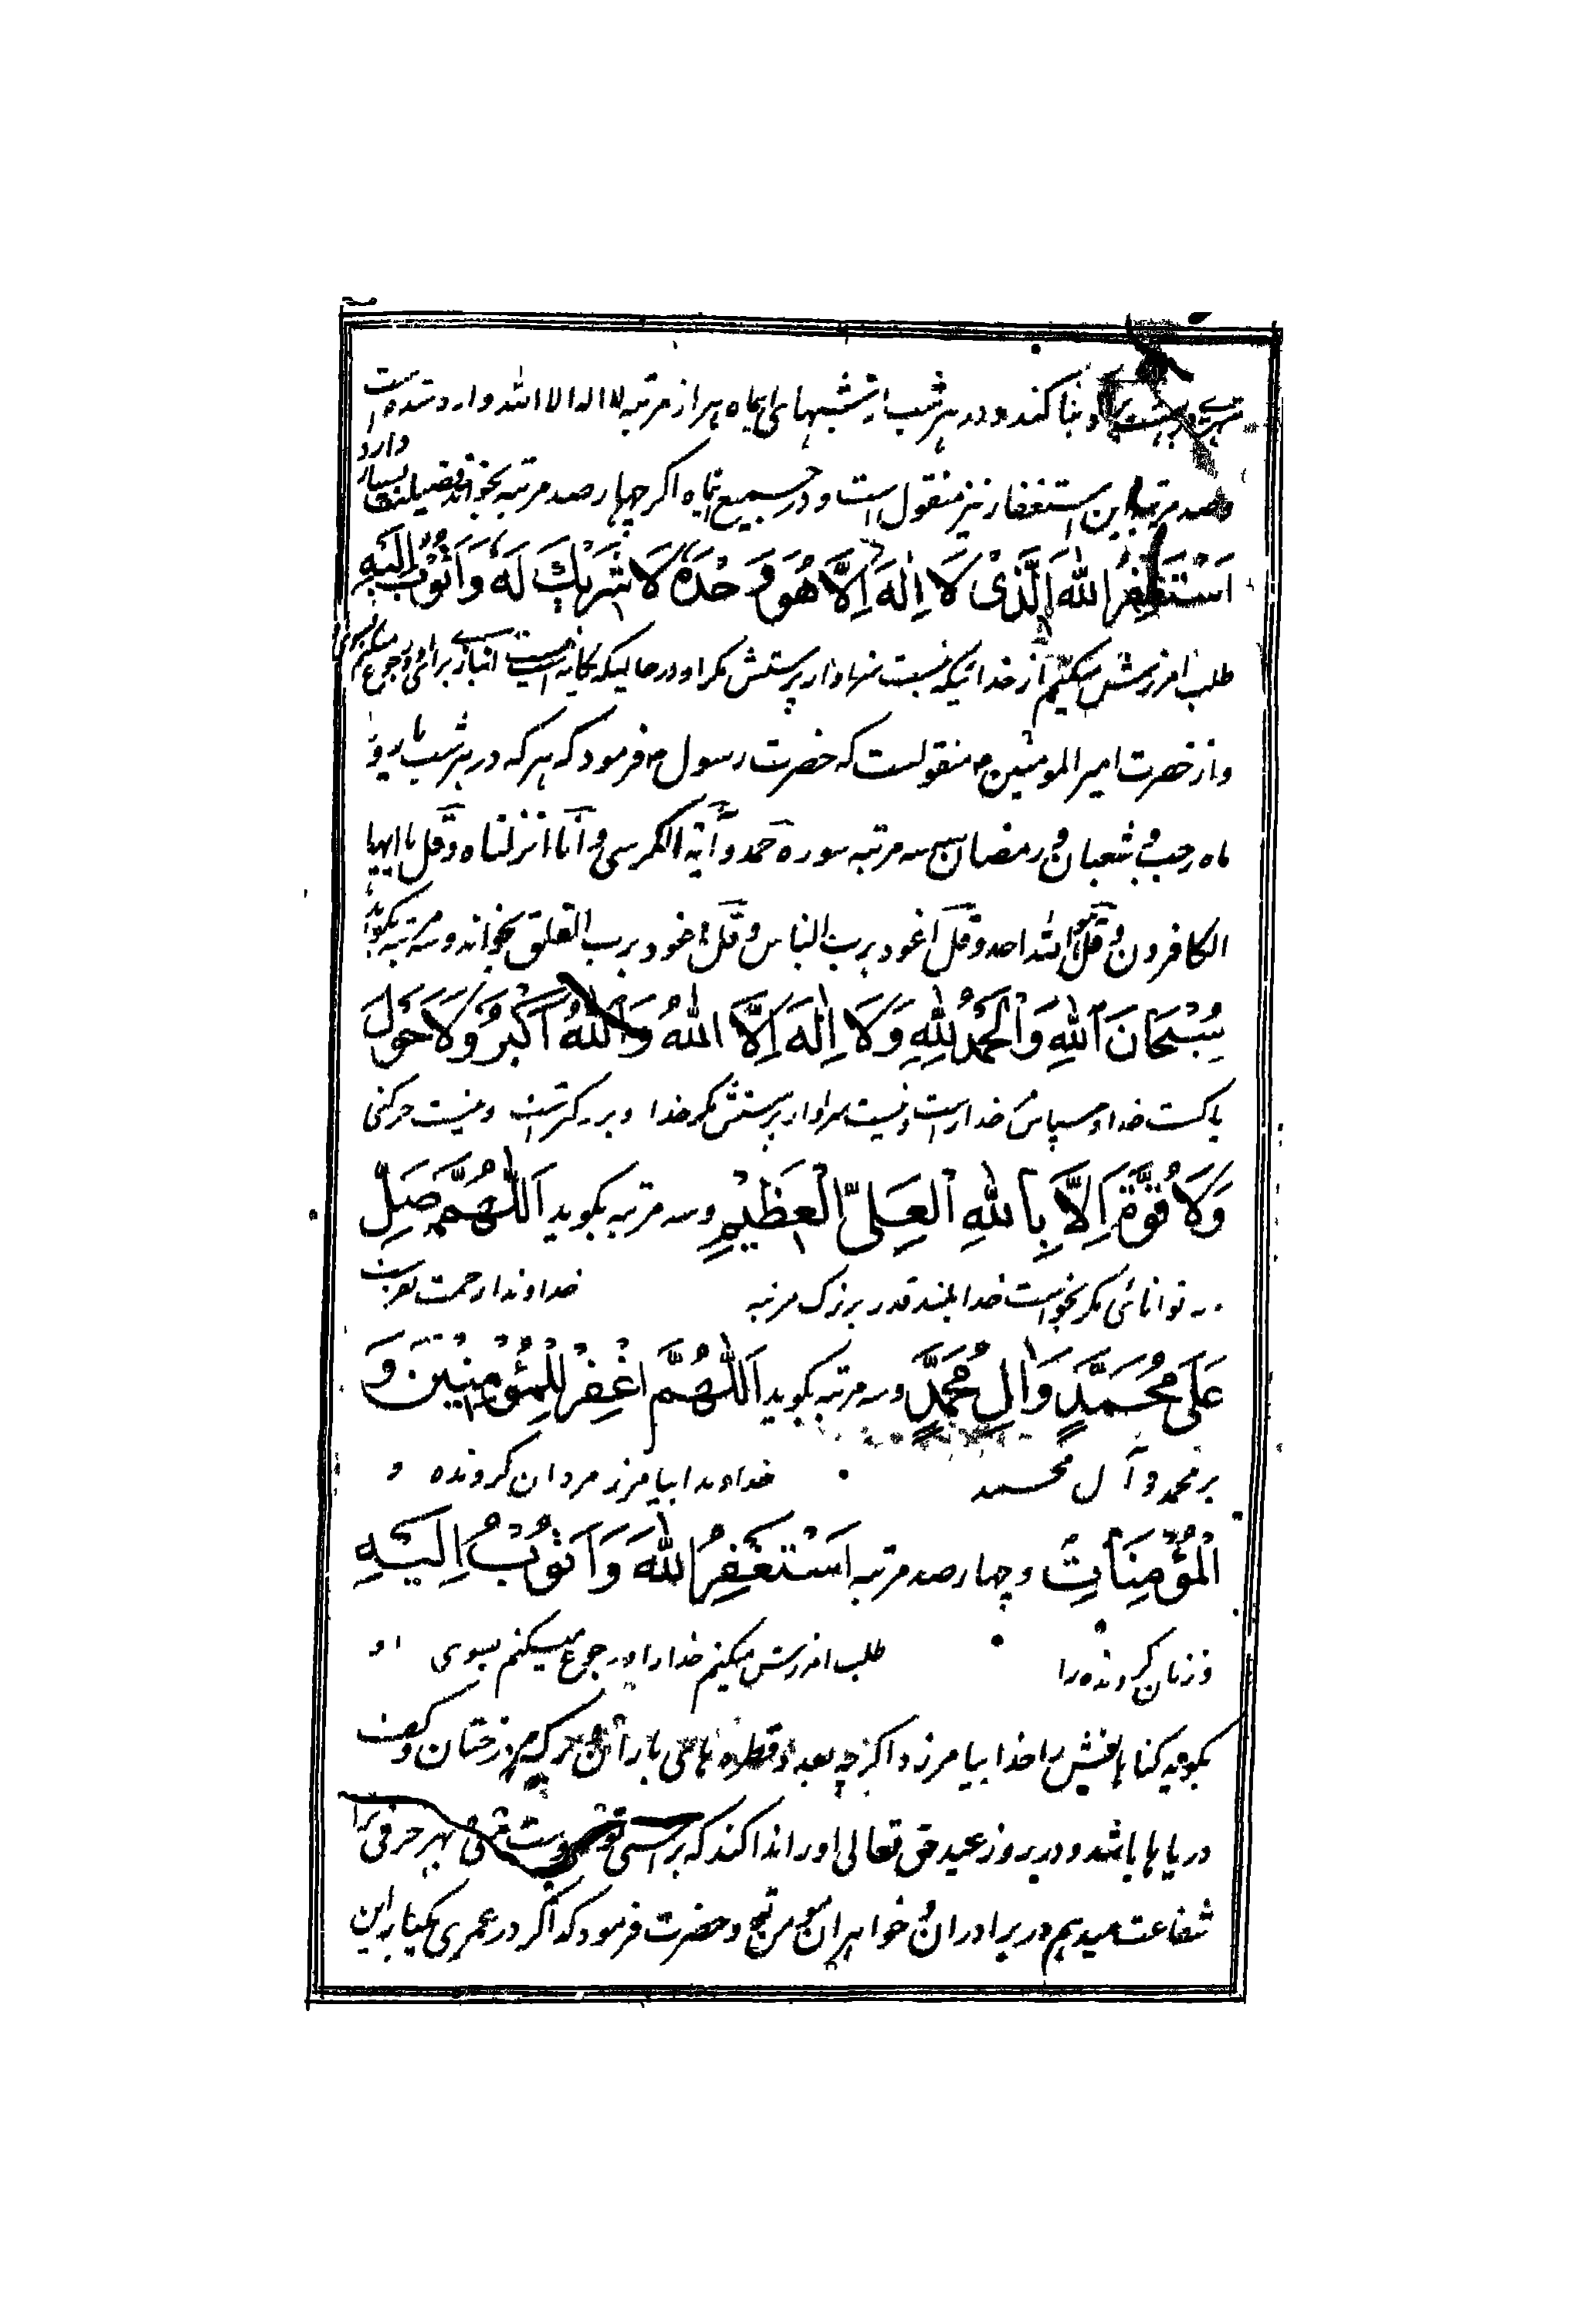 شهری در بهشت برای او بنا کند و در هر شب از شبهای اینماه هزار مرتبه لا اله الا الله وارد شده است
و صد مرتبه این استغفار نیز منقول است و در جمیع اینماه اگر چهار صد مرتبه بخواند فضیلت بسیار دارد
اَسْتَغْفِرُ اللهَ الَّذِیْ لَا اِلٰهَ اِلَّا هُوَ وَحْدَهُ لَا شَرِیْكَ لَهُ وَ اَتُوْبُ اِلَیْهِ
طلب امرزش میکنم از خدائیکه نیست سزاوار پرستش مگر او در حالیکه یگانه است نیست انباز برای او و رجوع میکنم بسوی
و از حضرت امیر المومنین ؑ منقولست که حضرت رسول ؐ فرمود که هر که در هر شب یا روز
ماه رجب و شعبان و رمضان سه مرتبه سوره حمد و آیة الکرسی و انا انزلناه و قل یا ایها
الکافرون و قل هو الله احد و قل اعوذ برب الناس و قل اعوذ برب الفلق بخواند و سه مرتبه بگوید
سُبْحَانَ اللهِ وَالْحَمْدُ لِلّٰهِ وَلَا اِلٰهَ اِلَّا اللهُ وَاللهُ اَكْبَرُ وَلَا حَوْلَ
پاکست خدا و سپاس خدا راست و نیست سزاوار پرستش مگر خدا و بزرگتر است و نیست حرکتی
وَلَا قُوَّةَ اِلَّا بِاللهِ الْعَلِیِّ الْعَظِیْمِ و سه مرتبه بگوید اَللّٰهُمَّ صَلِّ
و نه توانائی مگر بخواست خدا بلند قدر بزرگ مرتبه خداوندا رحمت بفرست
عَلٰی مُحَمَّدٍ وَاٰلِ مُحَمَّدٍ و سه مرتبه بگوید اَللّٰهُمَّ اغْفِرْ لِلْمُؤْمِنِیْنَ وَ
بر محمد و آل محمد خداوندا بیامرز مردان گرونده و
الْمُؤْمِنَاتِ و چهار صد مرتبه اَسْتَغْفِرُ اللهَ وَ اَتُوْبُ اِلَیْهِ
و زنان گرونده را طلب امرزش میکنم خدا را و رجوع میکنم بسوی او
بگوید گناهانش را خدا بیامرزد اگر چه بعدد قطره های باران و برگ درختان و کف
دریاها باشد و در روز عید حق تعالی او را ندا کند که براستی تو دوست منی و بهر حرفی ترا
شفاعت میدهم در برادران و خواهران مومن تو و حضرت فرمود که اگر در عمری یکبار این